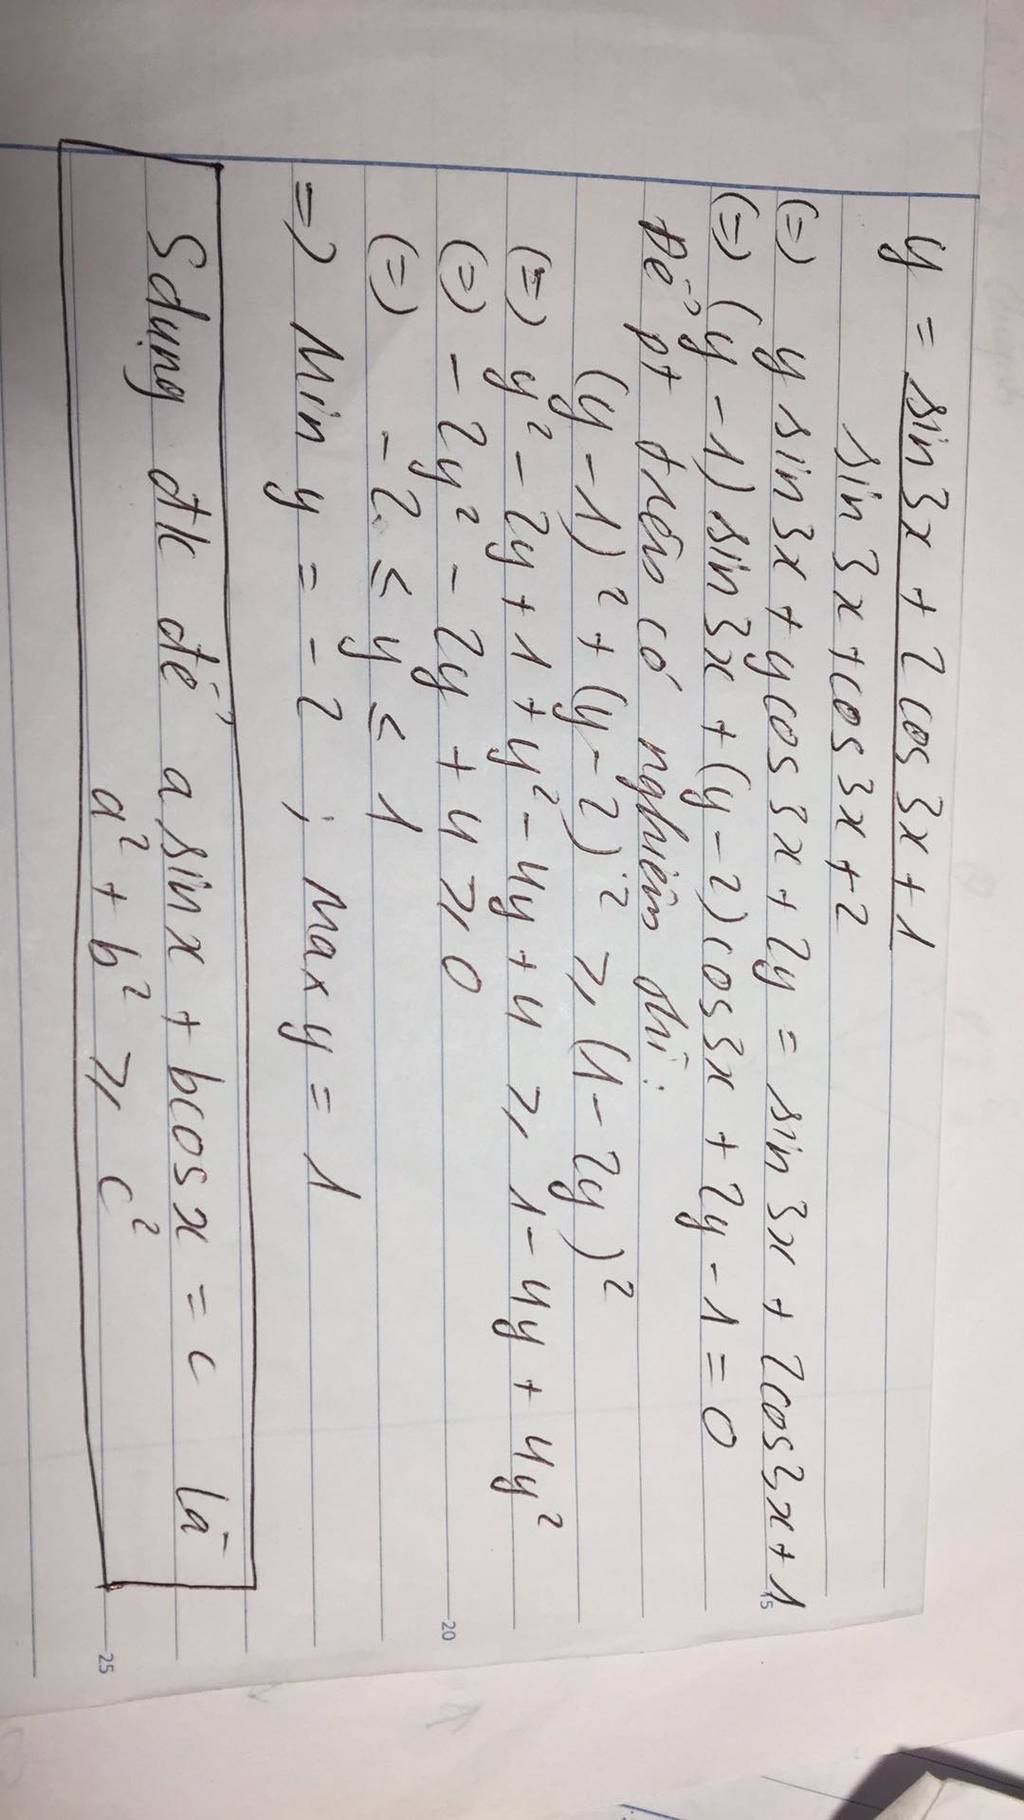 y = sin 3x + 2 cos 3x + 1
sin 3x + cos 3x + 2
(=) y sin 3x + y cos 3x + 2y = sin 3x + 2 cos 3x + 1
(=) (y - 1) sin 3x + (y - 2) cos 3x + 2y - 1 = 0
Để pt trên có nghiệm thì:
(y - 1)² + (y - 2)² ≥ (1 - 2y)²
(=) y² - 2y + 1 + y² - 4y + 4 ≥ 1 - 4y + 4y²
(=) - 2y² - 2y + 4 ≥ 0
(=) - 2 ≤ y ≤ 1
=) Min y = - 2 ; Max y = 1
Sdụng đk để a sin x + b cos x = c là
a² + b² ≥ c²
15
20
25